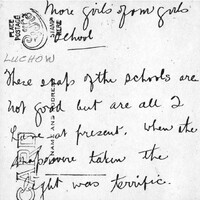 More girls from girls
School
PLACE POSTAGE STAMP HERE
LUCHOW
These snaps of the schools are
not good but are all I
have at present. When the
snaps were taken the
light was terrific.
NAME AND ADDRESS
CARD